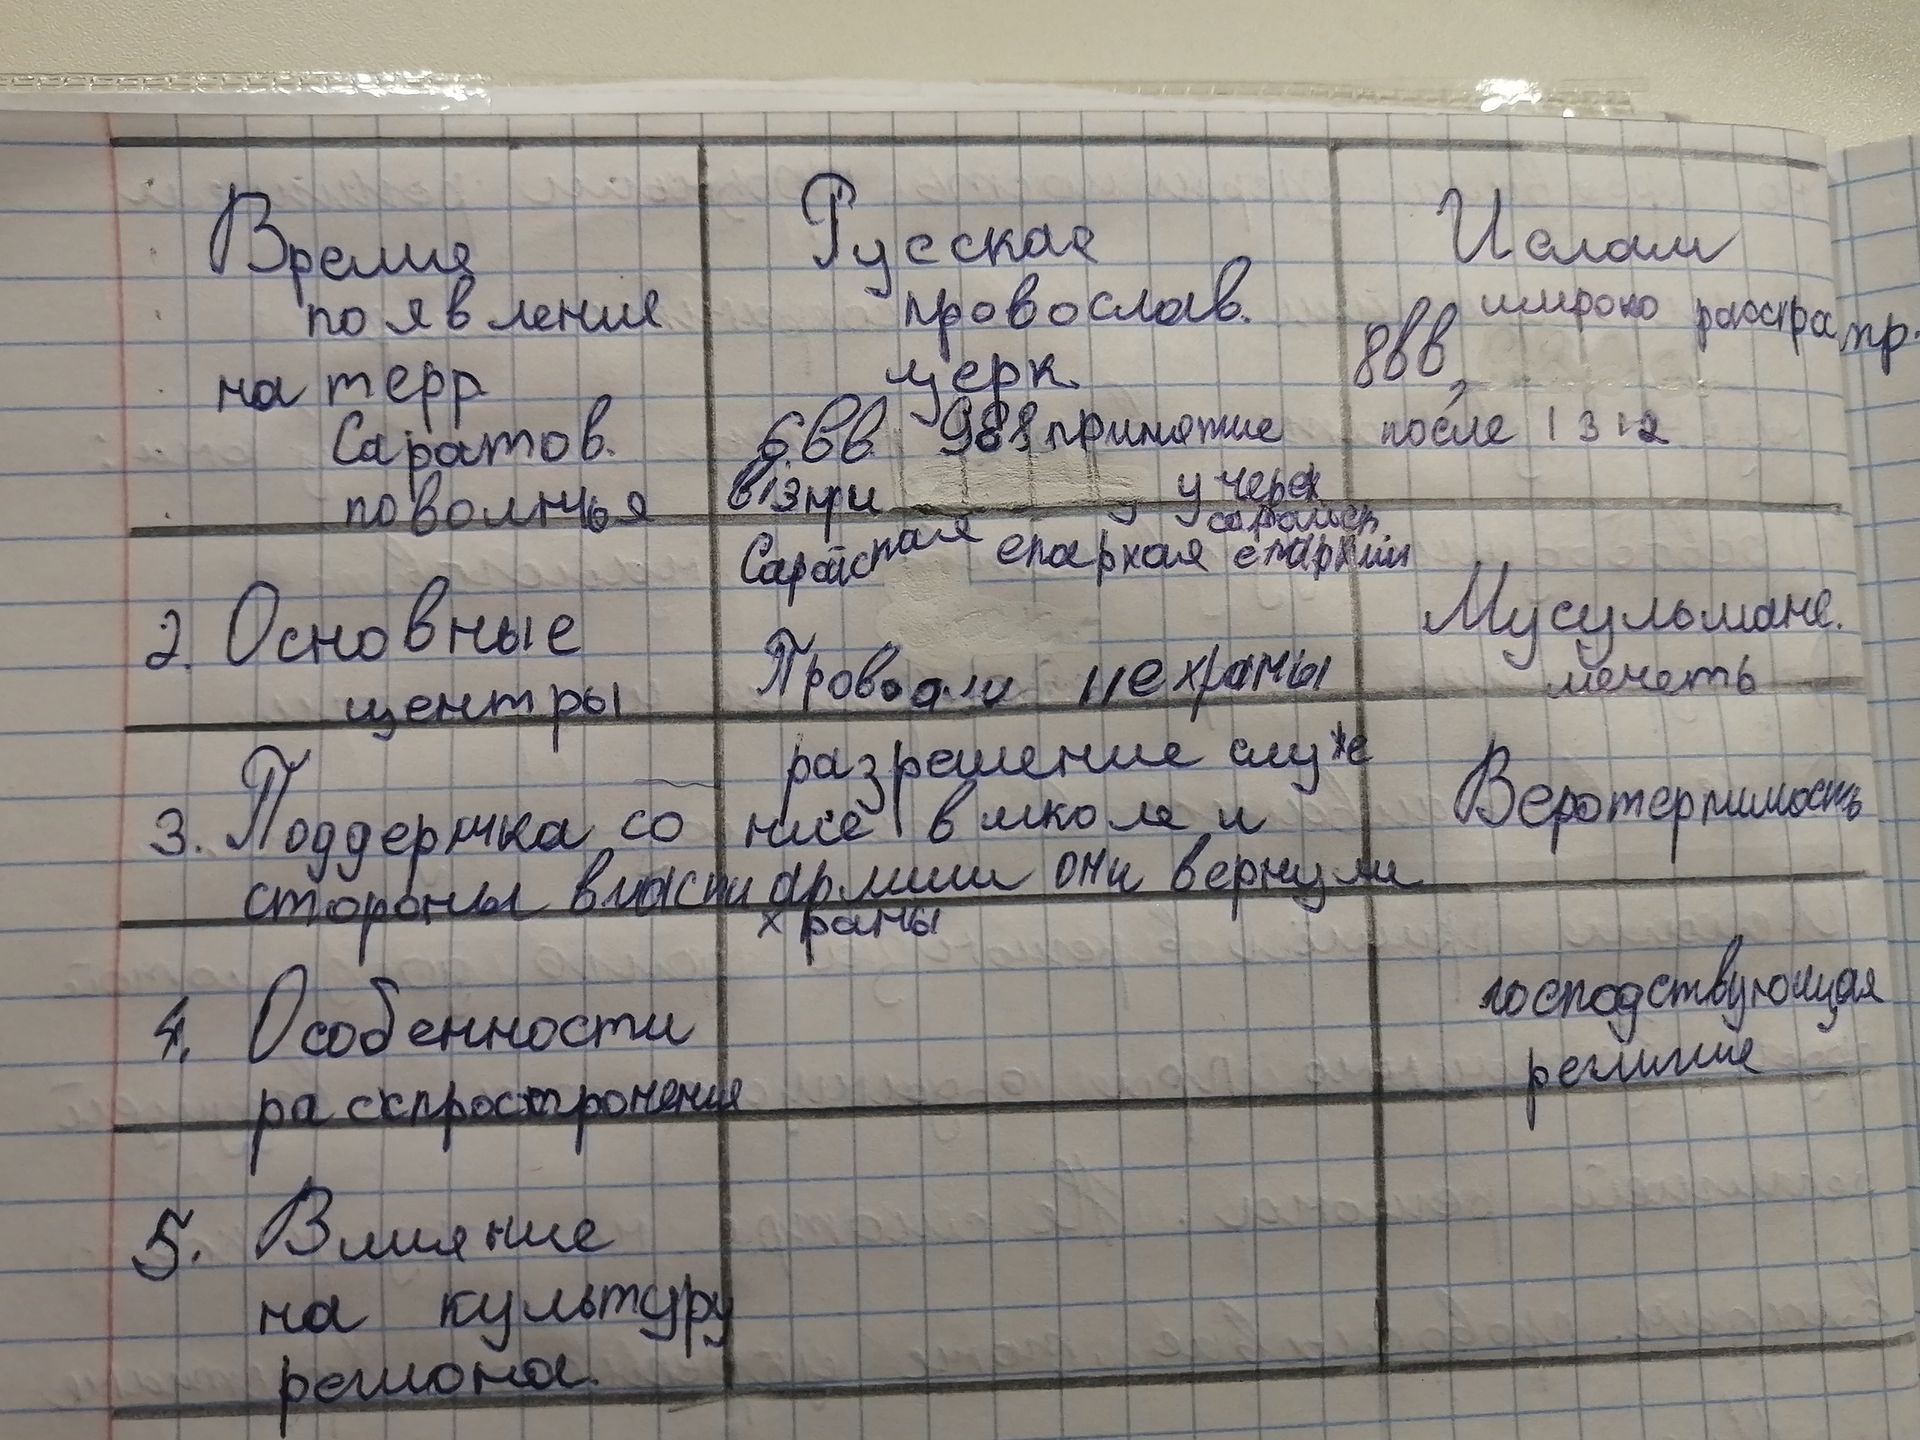 Время
появления
на терр
Саратов.
поволжья
Русская
провослав.
церк.
6.вв. 988 принятие
в 13 при
учереж
Сарайская епархая епархии
Ислам
широко распр.
8вв,
после 1312
2. Основные
центры
храмы
Мусульмане.
мечеть
3. Поддержка со
стороны власти
разрешение служе
ние в школе и
армии они вернули
храмы
Веротерпимость
4. Особенности
распростронения
господствующая
религие
5. Влияние
на культуру
региона.